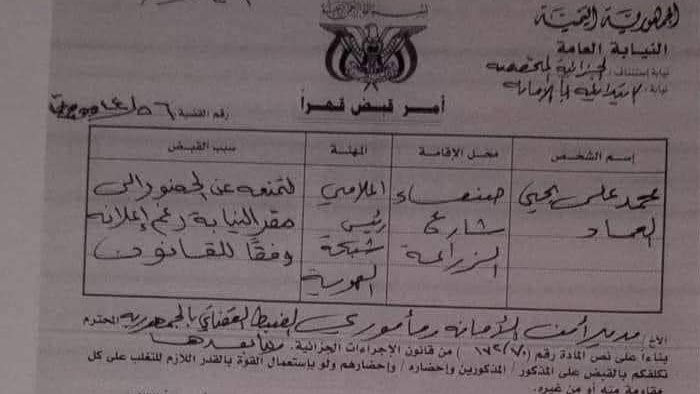 الجمهورية اليمنية
النيابة العامة
نيابة إستئناف: الجزائية المتخصصة
نيابة: الابتدائية بالأمانة
أمر قبض قهراً
رقم القضية
إسم الشخص محل الإقامة المهنة سبب القبض
محمد علي يحيى صنعاء الإعلامي لتمنعه عن الحضور إلى
العماد شارع رئيس مقر النيابة رغم إعلانه
الزراعة شبكة وفقاً للقانون
الهوية
الأخ/ مدير أمن الأمانة ومأموري الضبط القضائي بالجمهورية المحترم
بناءاً على نص المادة رقم ( ) من قانون الإجراءات الجزائية.
نكلفكم بالقبض على المذكور / المذكورين وإحضاره / وإحضارهم ولو بإستعمال القوة بالقدر اللازم للتغلب على كل
مقاومة منه أو من غيره.